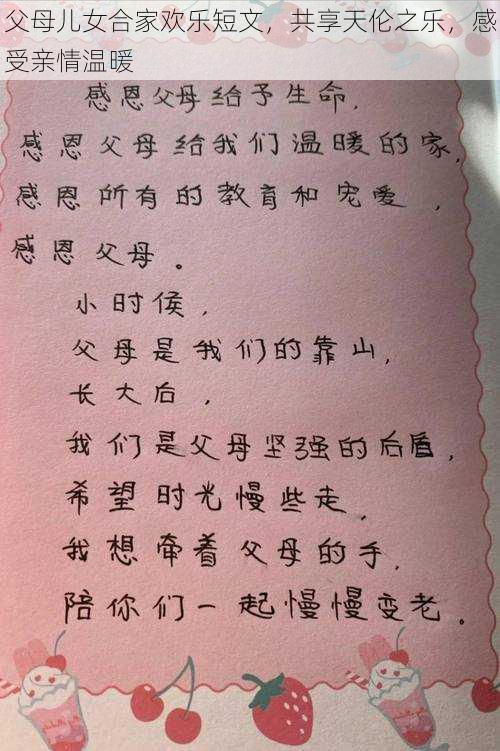 父母儿女合家欢乐短文，共享天伦之乐，感
受亲情温暖
感恩父母给予生命，
感恩父母给我们温暖的家，
感恩所有的教育和宠爱，
感恩父母。
小时侯，
父母是我们的靠山，
长大后，
我们是父母坚强的后盾，
希望时光慢些走，
我想牵着父母的手，
陪你们一起慢慢变老。